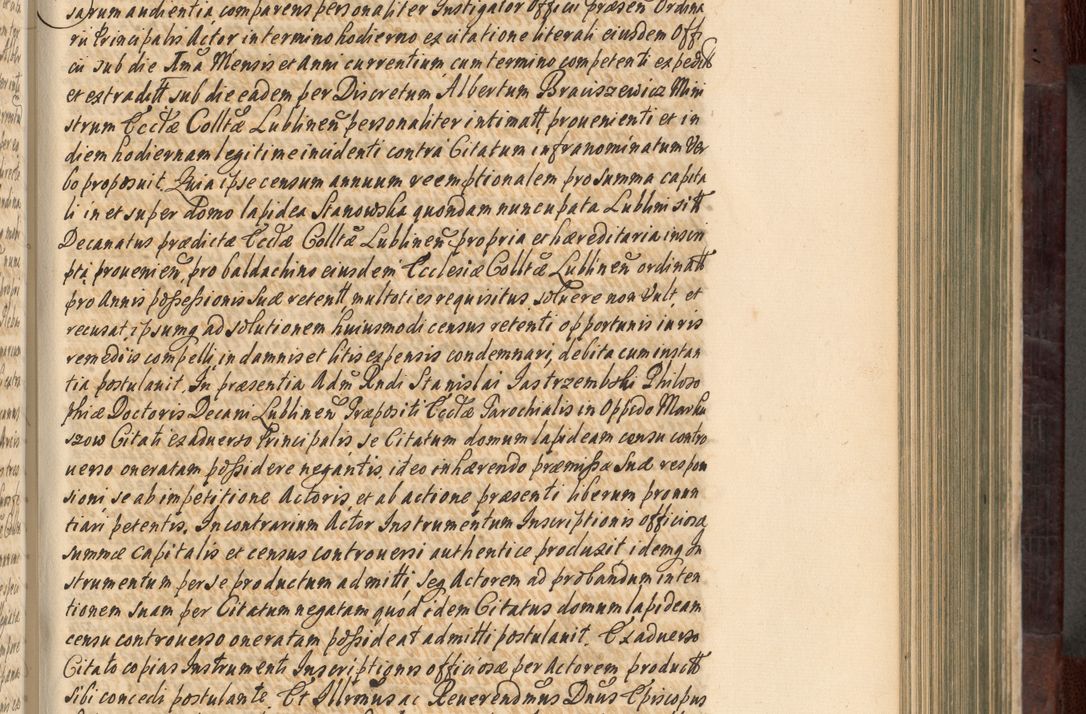 sarum audientia comparens personaliter Instigator Officii præsen Ordina
rii Principalis Actor in termino hodierno ex citatione literali eiusdem Offi
cii sub die Ima Mensis et Anni currentium cum termino competenti expedit
et extraditt sub die eadem per Discretum Albertum Brauszewicz Mini
strum Ecctæ Colltæ Lublinen personaliter intimatt, prouenienti et in
diem hodiernam legitime incidenti contra Citatum infranominatum Ver
bo proposuit. Quia ipse censum annuum reemptionalem pro summa capita
li in et super Domo lapidea Stanowska quondam nuncupata Lublini sitt
Decanatus prædictæ Ecctæ Colltæ Lublinen propria et hæreditaria inscri
pta, prouenien pro baldachino eiusdem Ecclesiæ Colltæ Lublinen ordinatt
pro Annis possessionis suæ retentt multoties requisitus soluere non Vult et
recusat, ipsumq ad solutionem huiusmodi census retenti opportunis iuris
remediis compelli, in damnis et litis expensis condemnari, debita cum instan
tia postulauit. In præsentia Adm Rndi Stanislai Jastrzembski Philoso
phiæ Doctoris Decani Lublinen Præpositi Ecctæ Parochialis in Oppido Marku
szow Citati ex aduerso Principalis se Citatum domum lapideam censu contro
uerso oneratam possidere negantis, ideo inhærendo præmissæ suæ respon
sioni, se ab impetitione Actoris, et ab actione præsenti liberum pronun
tiari petentis. In contrarium Actor Instrumentum Inscriptionis officiosæ
summæ capitalis et census controuersi authentice produxit idemq In
strumentum per se productum admitti, seq Actorem ad probandum inten
tionem suam per Citatum negatam quod idem Citatus domum lapideam
censu controuerso oneratam possideat admitti postulauit. Ex aduerso
Citato copias Instrumenti Inscriptionis officiosæ per Actorem productt
sibi concedi postulante. Et Illrmus ac Reverendmus Dnus Episcopus